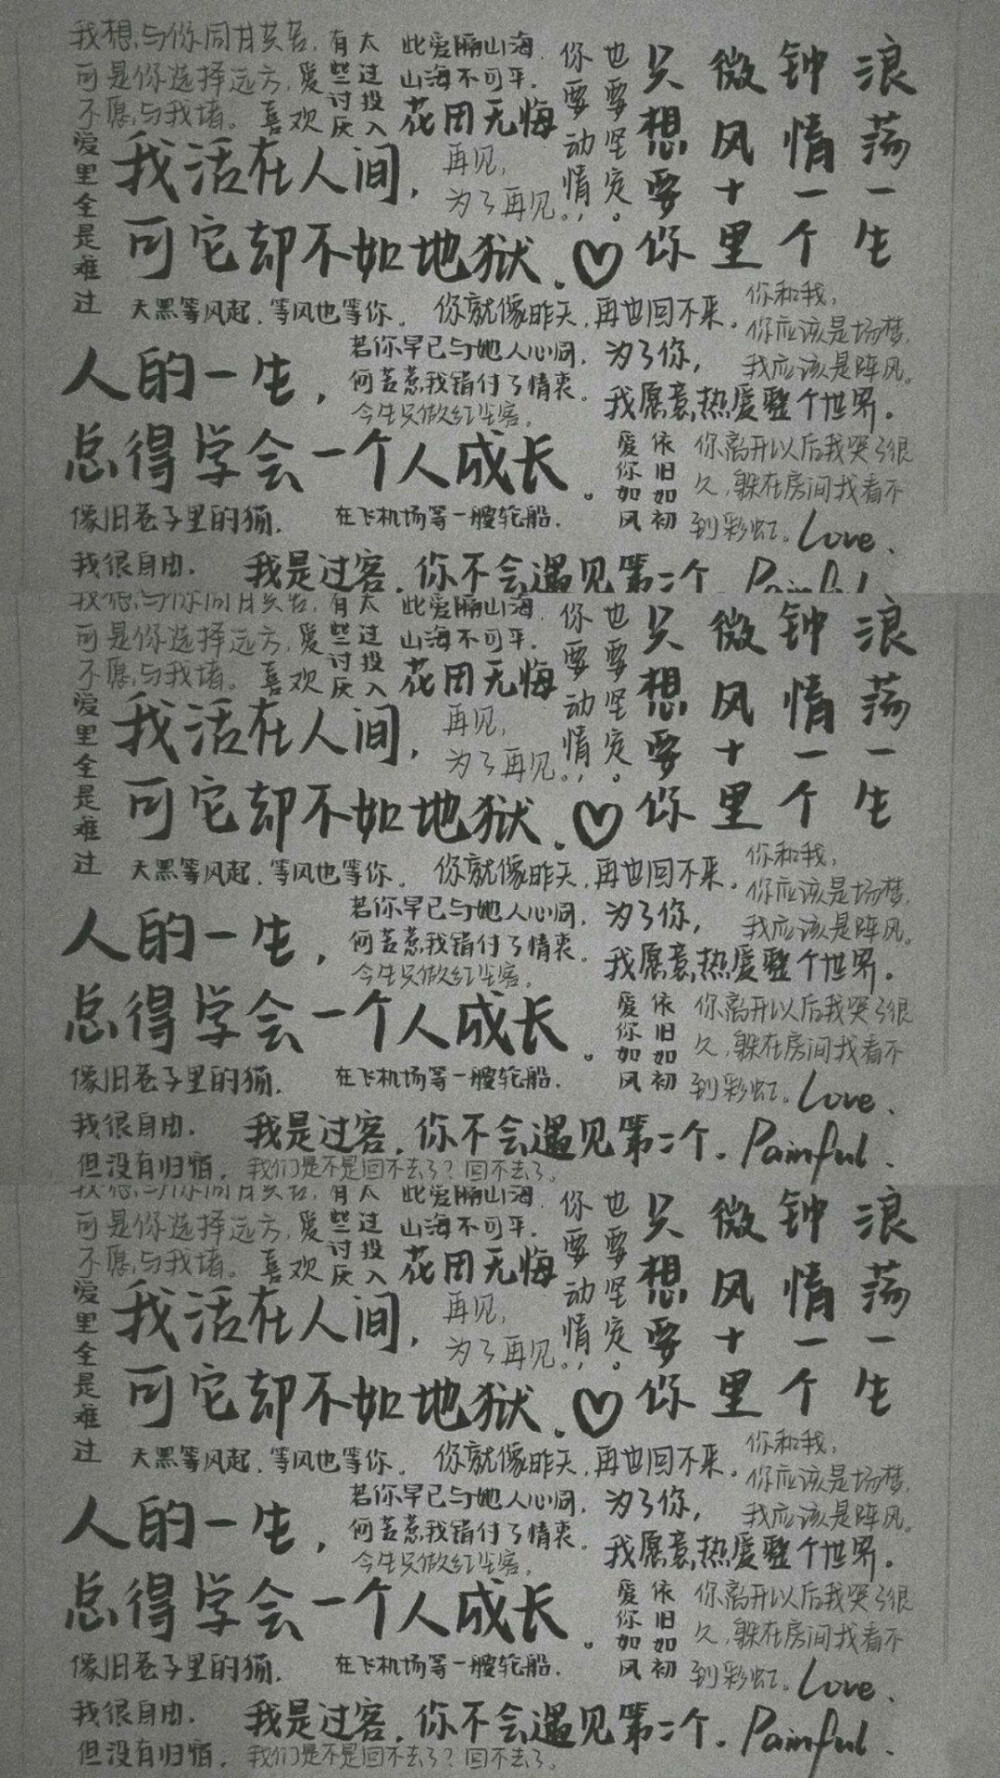 我想与你同甘共苦，
可是你选择远方，
不愿与我堵。
爱
喜欢
有些讨厌
太过投入
此爱隔山海，
山海不可平．
花田无悔
你要动情，
也要坚定。
只想要你
微风十里
钟情一个
浪荡一生
爱里全是难过
我活在人间，
再见，
为了再见。
可它却不如地狱．♡
天黑等风起，等风也等你。
你就像昨天，再也回不来。
你和我，
你应该是场梦，
我应该是阵风。
人的一生，
若你早已与她人心同，
何苦惹我错付了情衷。
今生只做红尘客．
为了你，
我愿意热爱整个世界．
总得学会一个人成长。
爱你如风
依旧如初
你离开以后我哭了很
久，躲在房间找看不
到彩虹。
像旧巷子里的猫．
在飞机场等一艘轮船．
Love．
我很自由．
我是过客．你不会遇见第二个．
Painful
我想与你同甘共苦，
可是你选择远方，
不愿与我堵。
爱
喜欢
有些讨厌
太过投入
此爱隔山海，
山海不可平．
花田无悔
你要动情，
也要坚定。
只想要你
微风十里
钟情一个
浪荡一生
爱里全是难过
我活在人间，
再见，
为了再见。
可它却不如地狱．♡
天黑等风起，等风也等你。
你就像昨天，再也回不来。
你和我，
你应该是场梦，
我应该是阵风。
人的一生，
若你早已与她人心同，
何苦惹我错付了情衷。
今生只做红尘客．
为了你，
我愿意热爱整个世界．
总得学会一个人成长。
爱你如风
依旧如初
你离开以后我哭了很
久，躲在房间找看不
到彩虹。
像旧巷子里的猫．
在飞机场等一艘轮船．
Love．
我很自由．
我是过客．你不会遇见第二个．
Painful．
但没有归宿．
我们是不是回不去了？回不去了。
我想与你同甘共苦，
可是你选择远方，
不愿与我堵。
爱
喜欢
有些讨厌
太过投入
此爱隔山海，
山海不可平．
花田无悔
你要动情，
也要坚定。
只想要你
微风十里
钟情一个
浪荡一生
爱里全是难过
我活在人间，
再见，
为了再见。
可它却不如地狱．♡
天黑等风起，等风也等你。
你就像昨天，再也回不来。
你和我，
你应该是场梦，
我应该是阵风。
人的一生，
若你早已与她人心同，
何苦惹我错付了情衷。
今生只做红尘客．
为了你，
我愿意热爱整个世界．
总得学会一个人成长。
爱你如风
依旧如初
你离开以后我哭了很
久，躲在房间找看不
到彩虹。
像旧巷子里的猫．
在飞机场等一艘轮船．
Love．
我很自由．
我是过客．你不会遇见第二个．
Painful．
但没有归宿．
我们是不是回不去了？回不去了。